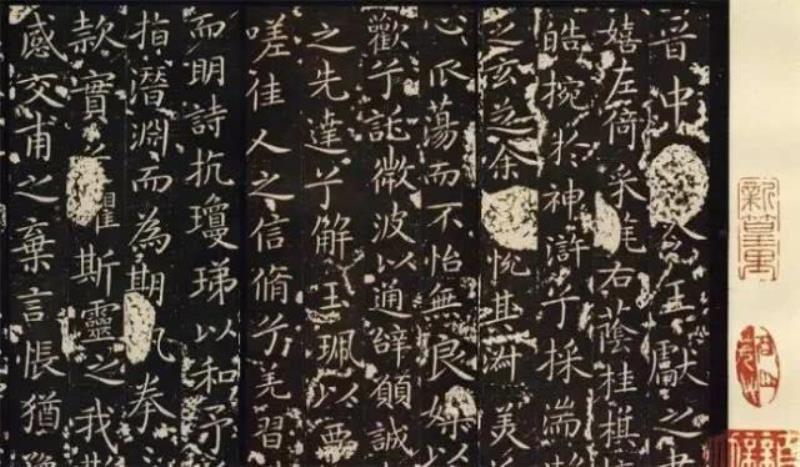 晉中令王獻之書
嬉左倚采旄右蔭桂旗
皓捥於神滸兮採湍
之玄芝余悅其淑美
心蕩而不怡無良媒以
歡兮託微波以通辭願誠
之先達兮解玉珮以要
嗟佳人之信脩兮羌習
而明詩抗瓊珶以和予
指潛淵而為期執拳
款實懼斯靈之我欺
感交甫之棄言悵猶豫
新篁里